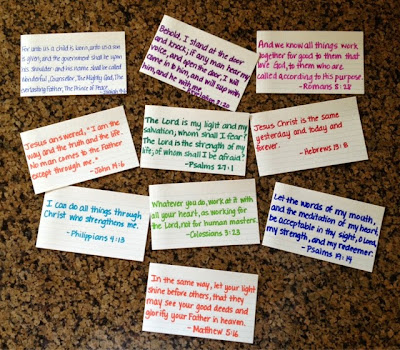 For unto us a child is born, unto us a son
is given; and the government shall be upon
his shoulder: and his name shall be called
Wonderful, Counsellor, The Mighty God, The
everlasting Father, The Prince of Peace.
Isaiah 9:6
Behold, I stand at the door
and knock; if any man hear my
voice, and open the door, I will
come in to him, and will sup with
him, and he with me.
Revelation 3:20
And we know all things work
together for good to them that
love God, to them who are
called according to His purpose.
- Romans 8:28
Jesus answered, "I am the
way and the truth and the life.
No man comes to the Father
except through me."
- John 14:6
The Lord is my light and my
salvation; whom shall I fear?
The Lord is the strength of my
life; of whom shall I be afraid?
- Psalms 27:1
Jesus Christ is the same
yesterday and today and
forever.
- Hebrews 13:8
I can do all things through
Christ who strengthens me.
- Philippians 4:13
Whatever you do, work at it with
all your heart, as working for
the Lord, not for human masters.
- Colossians 3:23
Let the words of my mouth,
and the meditation of my heart,
be acceptable in thy sight, O Lord,
my strength, and my redeemer.
- Psalms 19:14
In the same way, let your light
shine before others, that they
may see your good deeds and
glorify your Father in heaven.
- Matthew 5:16